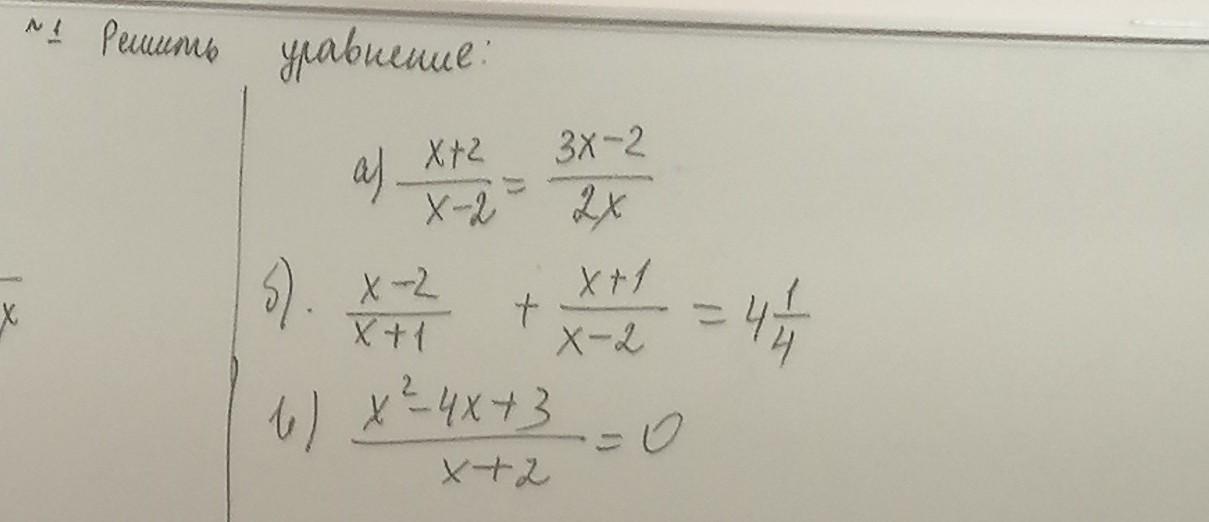 №1 Решить уравнение:
а) (x+2)/(x-2) = (3x-2)/(2x)
б). (x-2)/(x+1) + (x+1)/(x-2) = 4 1/4
x
в) (x²-4x+3)/(x+2) = 0